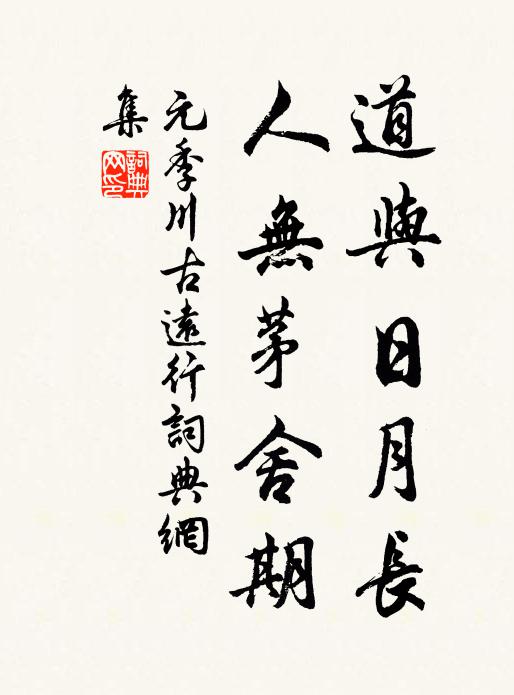 道與日月長
人無茅舍期
元季川古遠行詞典網
集
詞典
网印